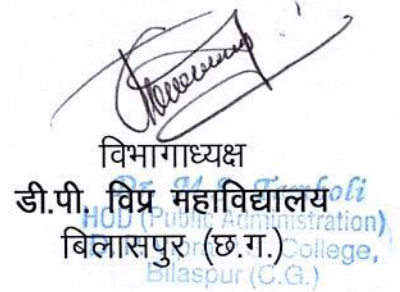 विभागाध्यक्ष
डी.पी. विप्र महाविद्यालय
M.S. Tamboli
HOD (Public Administration)
बिलासपुर (छ.ग.)
College,
Bilaspur (C.G.)